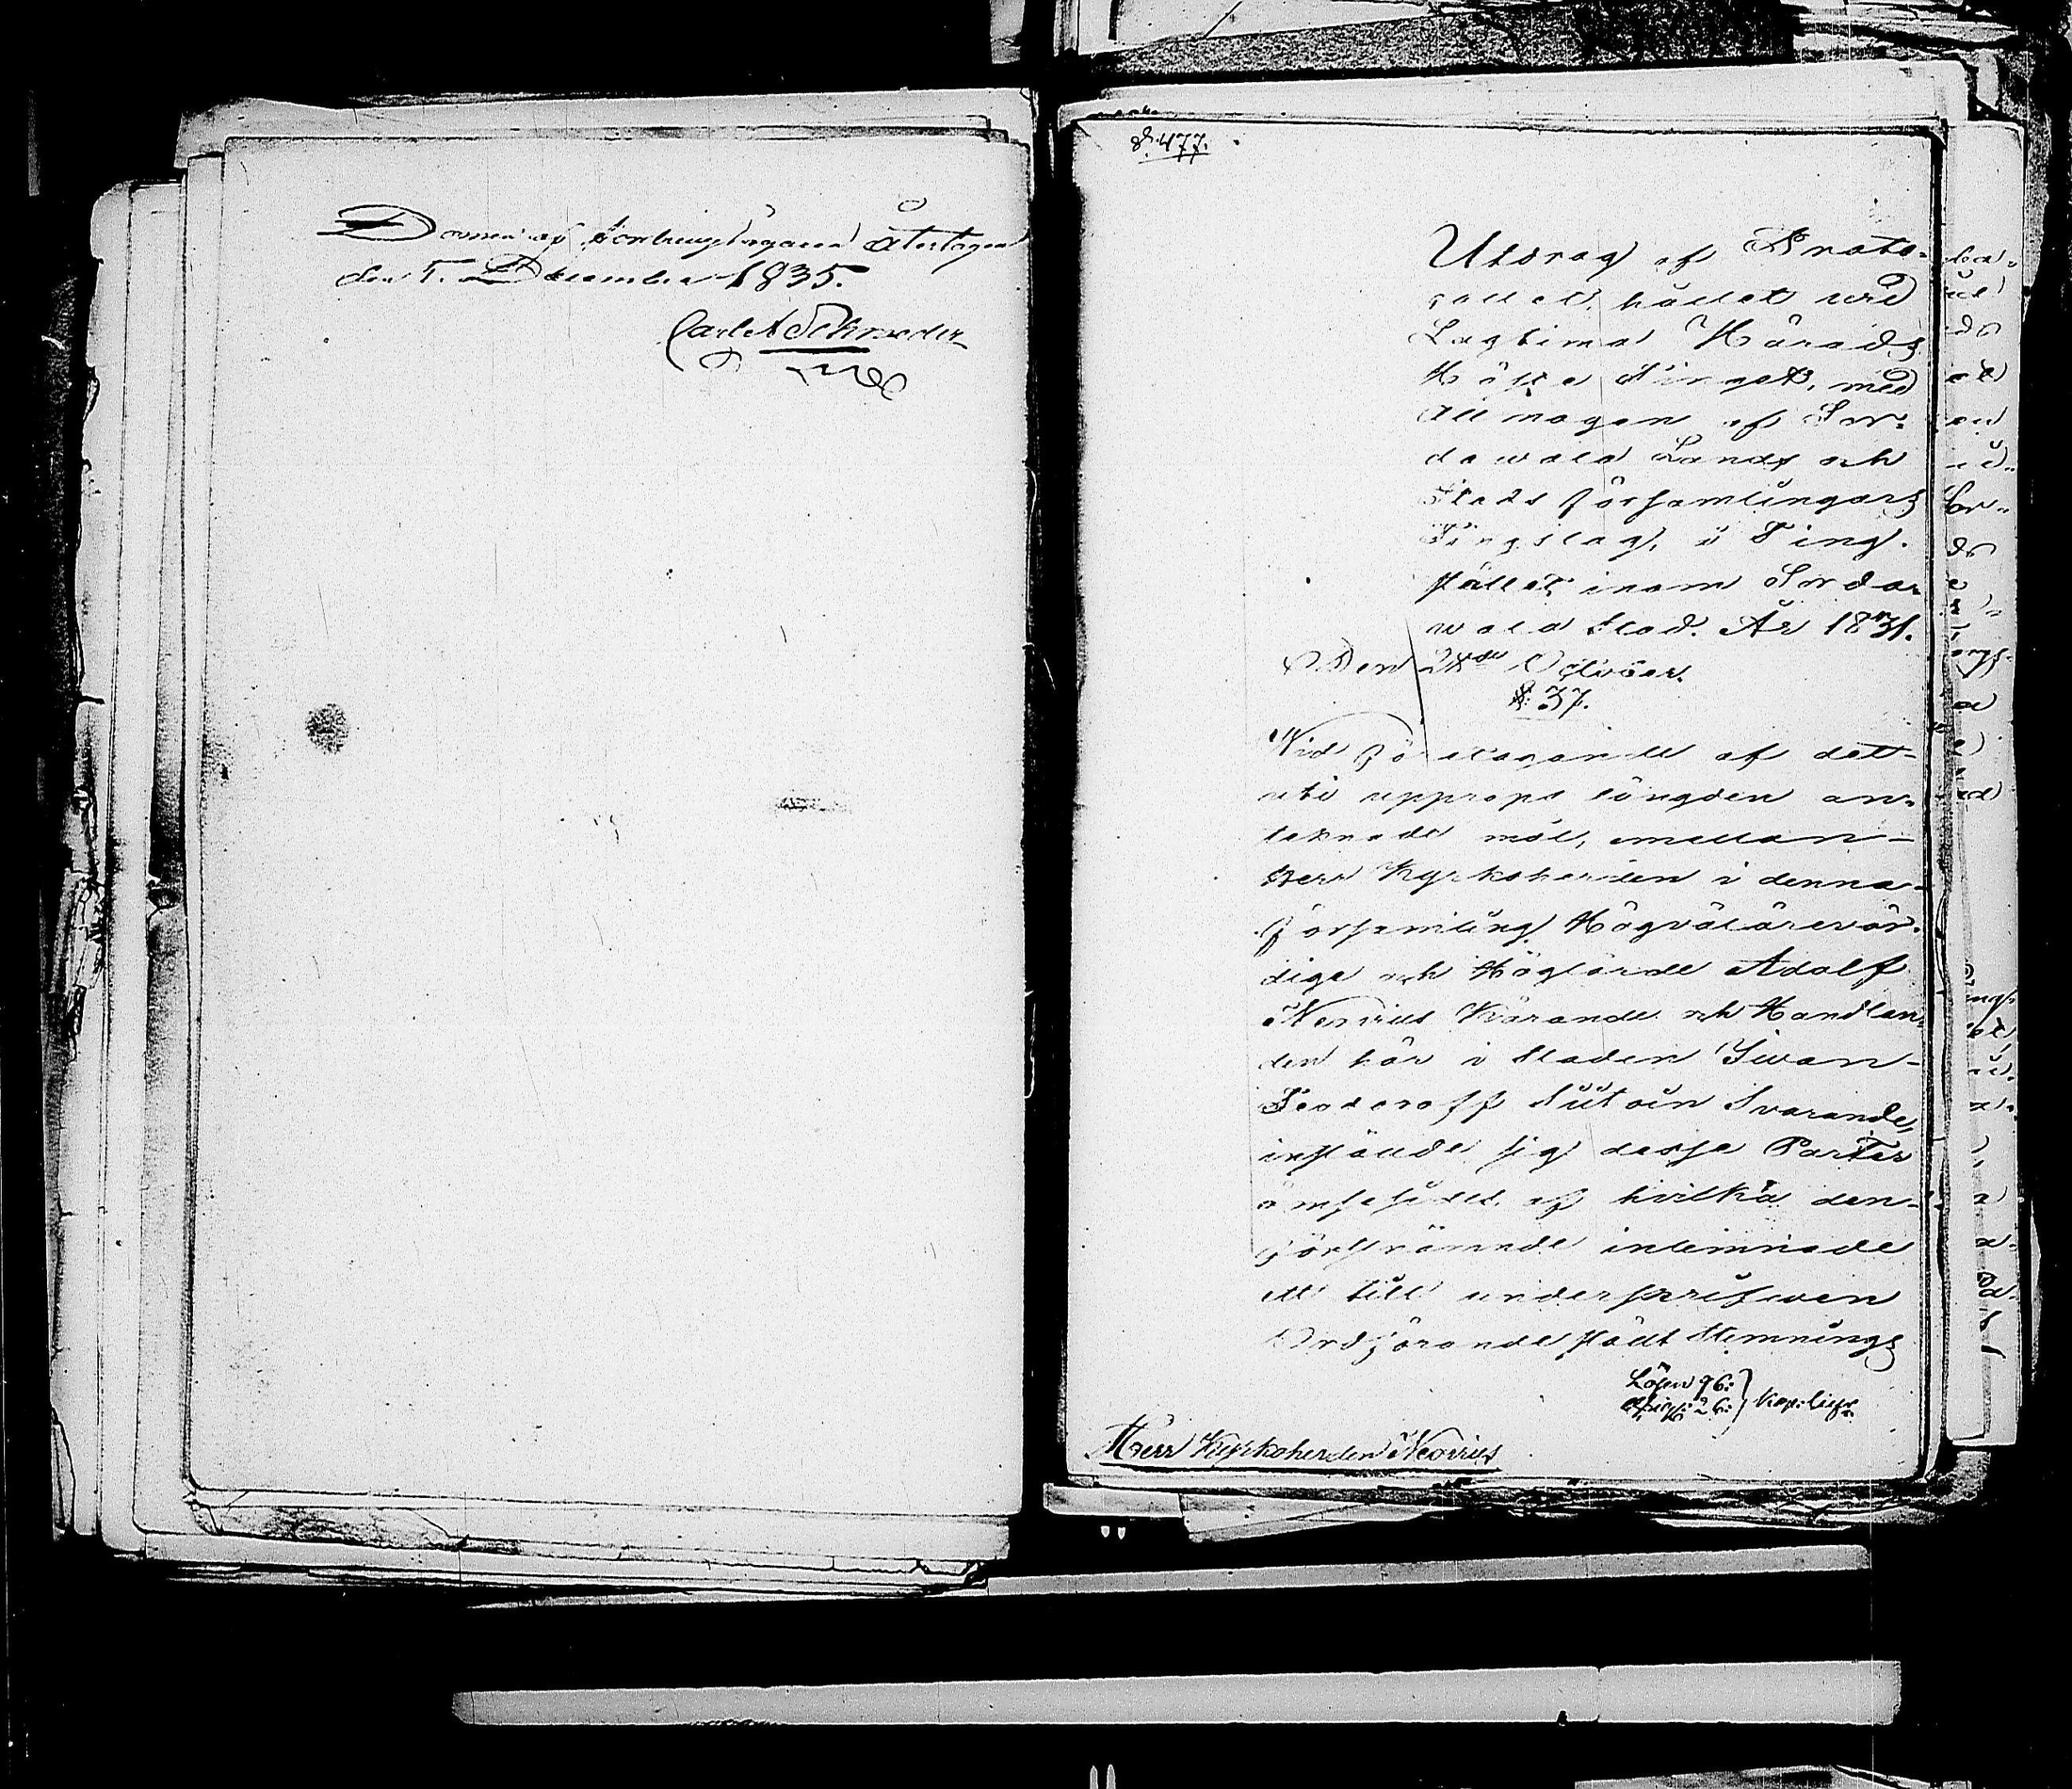 Domen af Fordringsägaren återtagen
den 5. December 1835.
Carl A Schræder
§. 477.
Utdrag af Proto-
collet, hållet wid
Lagtima Härads
Höste Tinget, med
Allmogen af Sor-
dawala Lands och
Stads församlingars
Tingslag, i Ting-
stället inom Sorda-
wala Stad. År 1831.
Den October.
§. 37.
Wid företagandet af dett
uti upprops längden an-
teknade mål, emellan
Herr Kyrkoherden i denna
församling Högvälärevör-
dige och Höglärde Adolf
Neovius Kärande och Handlan-
den här i Staden Iwan
Feodoroff Siitoin Svarande,
inställde sig desse Parter
ömsesidet, af hvilka den
förstnämnde inlemnade
ett till underskrifwen
Ordförande stäldt Stemnings
Lösen 96:
26: Kop: lif
Herr Kyrkoherden Neovius